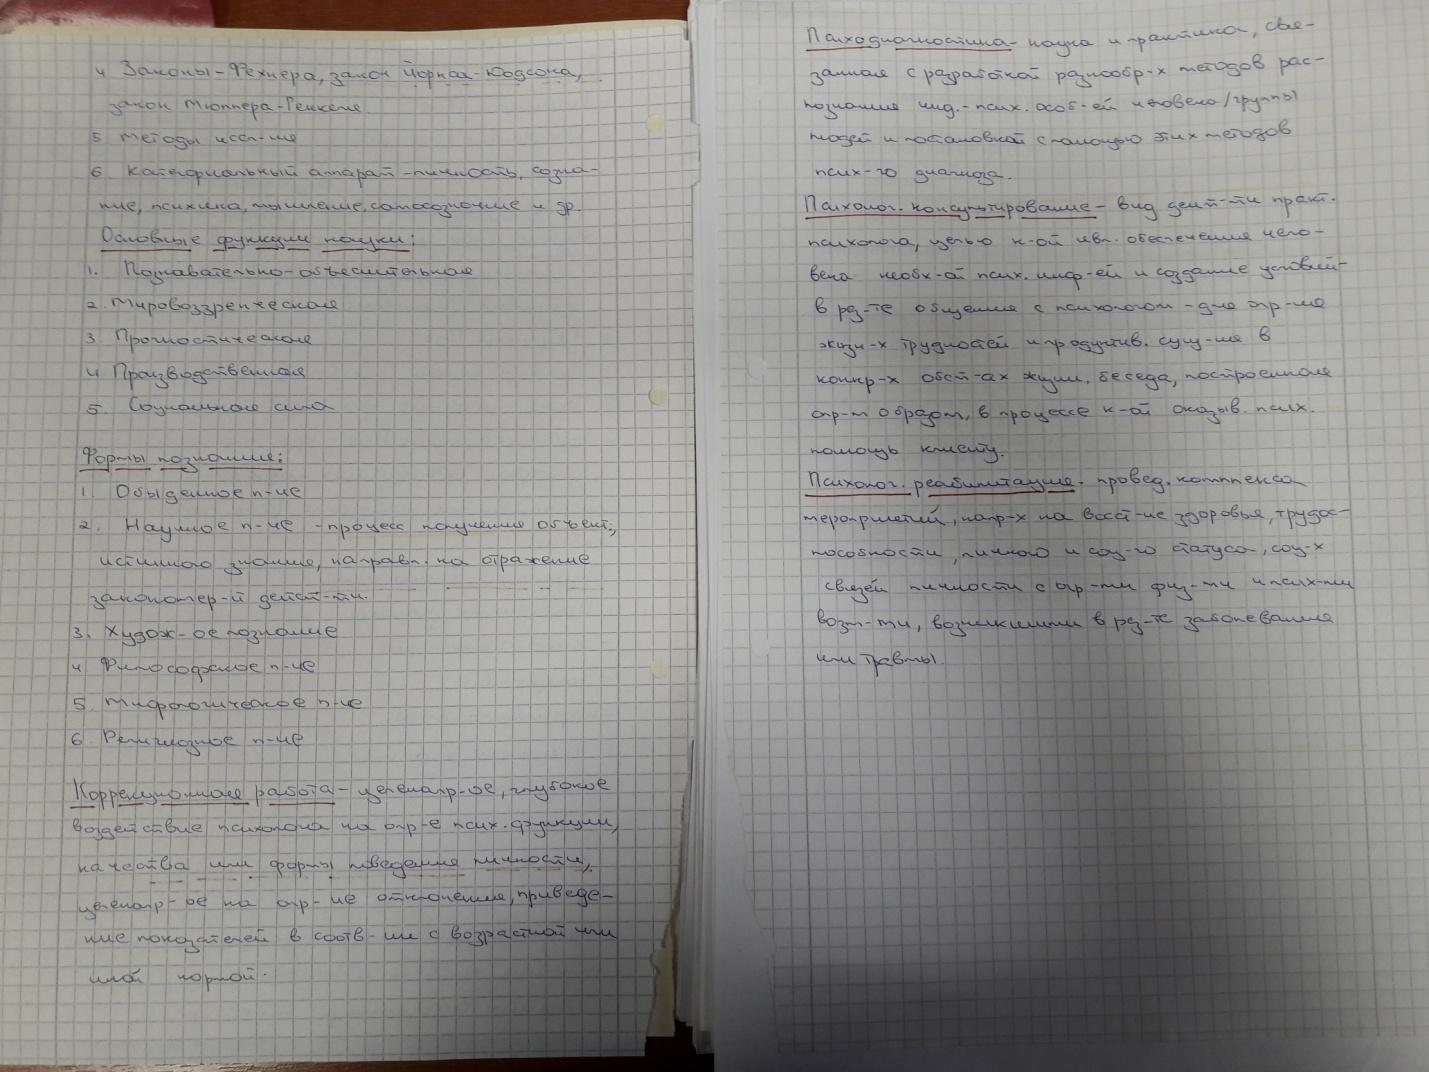 4 Законы-Фехнера, закон Йоркса-Додсона,
закон Мюллера-Геккеля
5 Методы иссл-ия
6 Категориальный аппарат-личность, созна-
ние, психика, мышление, самосознание и др.
Основные функции науки:
1. Познавательно-объяснительная
2. Мировоззренческая
3. Прогностическая
4 Производственная
5. Социальная сила
Формы познания:
1. Обыденное п-ие
2. Научное п-ие - процесс получения объект.,
истинного знания, направл. на отражение
закономер-й дейст-ти.
3. Худож-ое познание
4 Философское п-ие
5. Мифологическое п-ие
6. Религиозное п-ие
Коррекционная работа - целенапр-ое, глубокое
воздействие психолога на опр-е псих. функции,
качества или формы поведения личности,
целенапр-ое на опр-ие отклонения, приведе-
ние показателей в соотв-ии с возрастной или
иной нормой.
Психодиагностика - наука и практика, свя-
занная с разработкой разнообр-х методов рас-
познания инд.-псих. особ-ей человека/группы
людей и постановкой с помощью этих методов
псих-го диагноза.
Психолог. консультирование - вид деят-ти практ.
психолога, целью к-ой явл. обеспечения чело-
века необх-ой псих. инф-ей и создание условий-
в рез-те общения с психологом - для опр-ия
жизн-х трудностей и продуктив. сущ-ия в
конкр-х обст-ах жизни. беседа, построенная
опр-м образом, в процессе к-ой оказыв. псих.
помощь клиенту.
Психолог. реабилитация - провед. комплекса
мероприятий, напр-х на восст-ие здоровья, трудос-
пособности, личного и соц-го статуса, соц-х
связей личности с огр-ми физ-ми и псих-ми
возм-ти, возникшими в рез-те заболевания
или травмы.